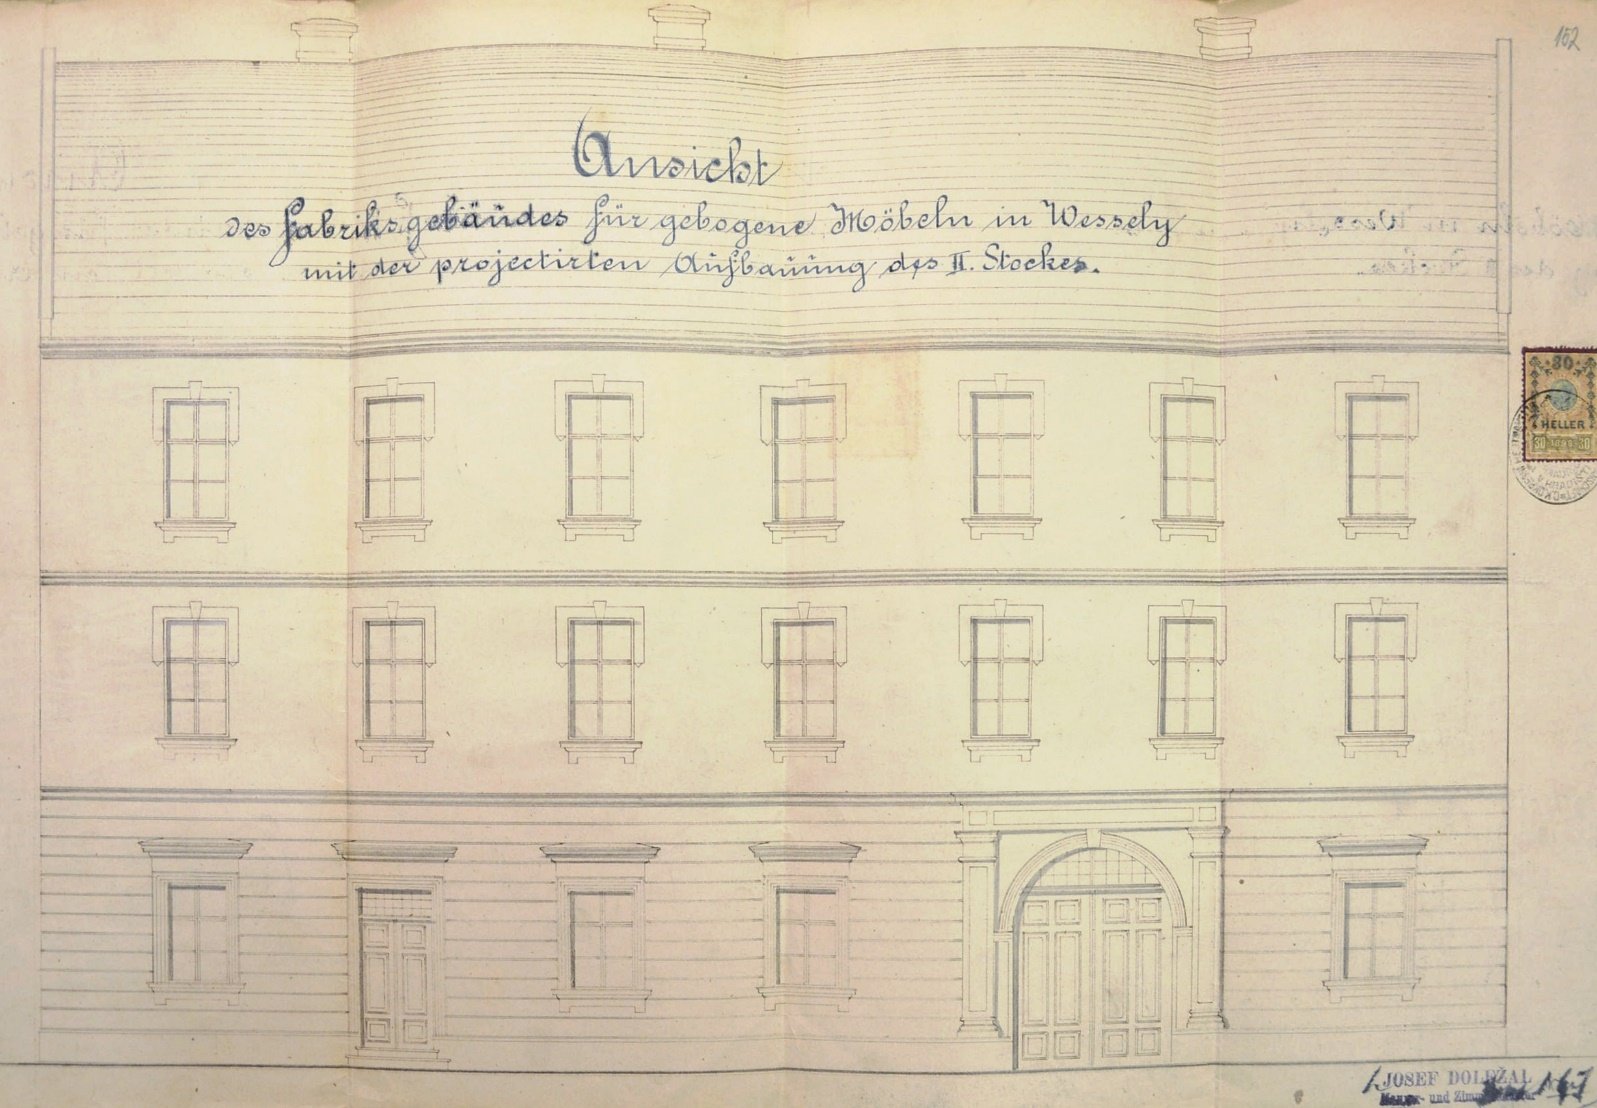 152
Ansicht
des Fabriksgebäudes für gebogene Möbeln in Wessely
mit der projectirten Aufbauung des II. Stockes.
30
HELLER
30 1898 30
JOSEF DOLEŽAL
Maurer- und Zimmermeister